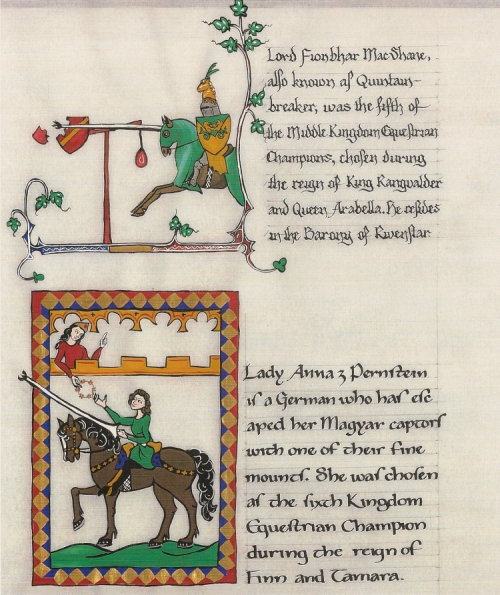 Lord Fionbhar MacShane,
also known as Quintain-
breaker, was the fifth of
the Middle Kingdom Equestrian
Champions, chosen during
the reign of King Rangvalder
and Queen Arabella. He resides
in the Barony of Rivenstar
Lady Anna z Pernstein
is a German who has esc
aped her Magyar captors
with one of their fine
mounts. She was chosen
as the sixth Kingdom
Equestrian Champion
during the reign of
Finn and Tamara.